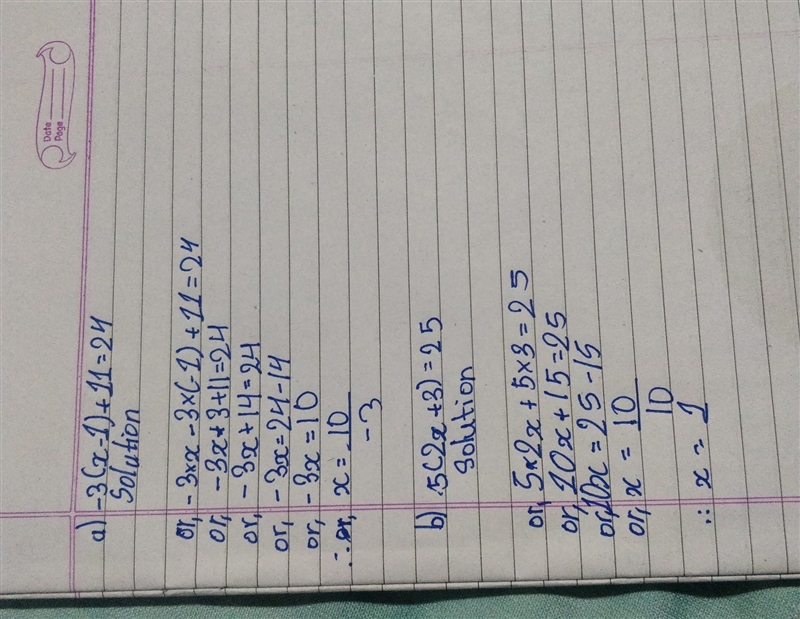 Date
Page
a) -3(x-1)+11=24
Solution
or, -3×x -3×(-1)+11=24
or, -3x+3+11=24
or, -3x+14=24
or, -3x=24-14
or, -3x=10
∴ x= 10
-3
b) 5(2x+3)=25
Solution
or, 5×2x+5×3=25
or, 10x+15=25
or, 10x=25-15
or, x = 10
10
∴ x = 1